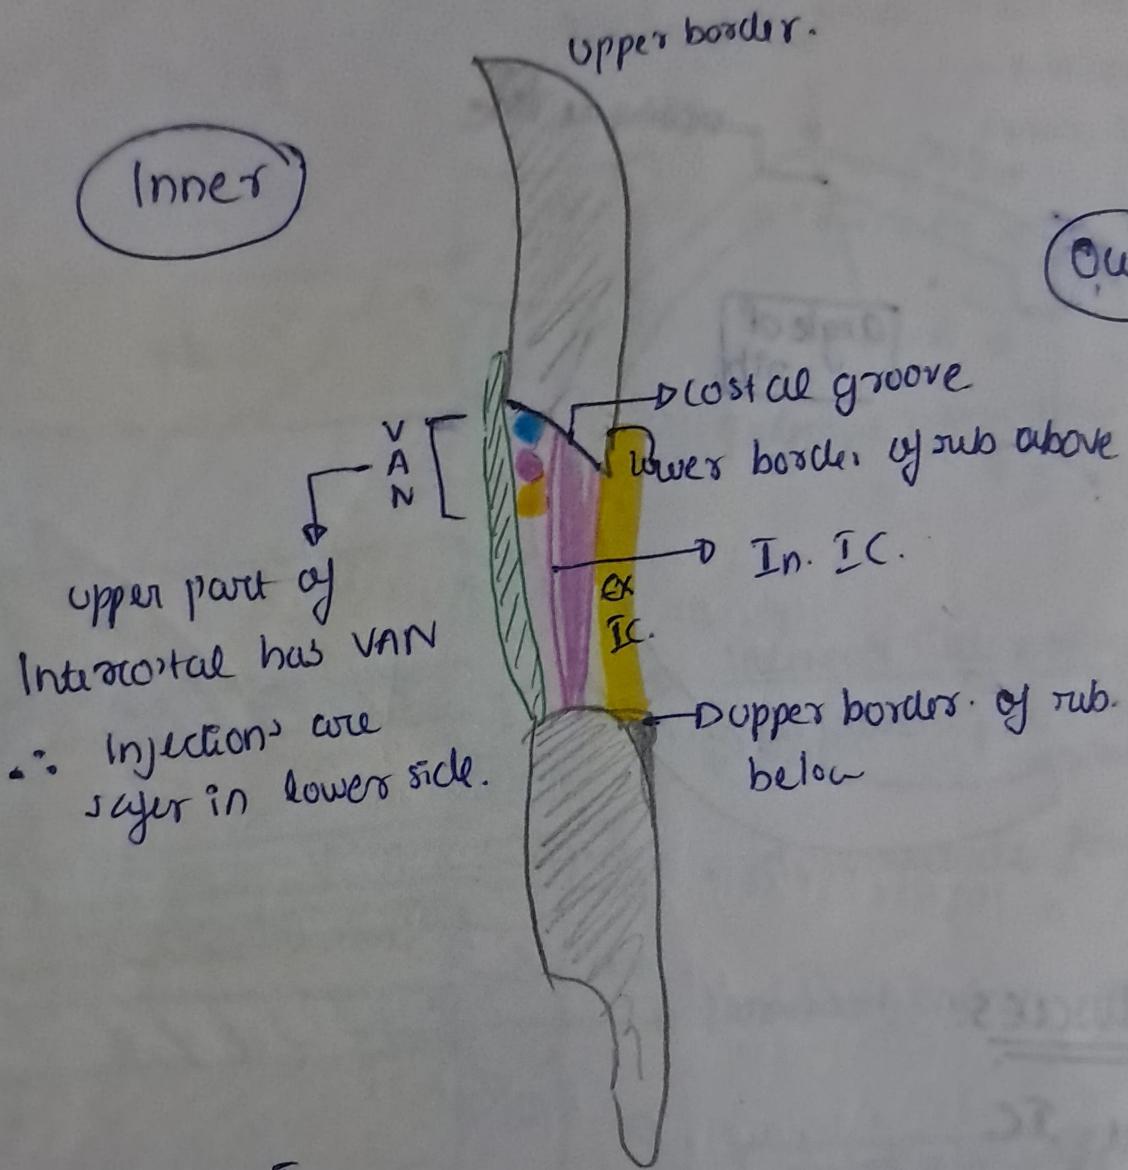 Upper border.
Inner
Ou
costal groove
V
A
N
lower border of rib above
In. IC.
Ex
IC.
upper part of
Intercostal has VAN
∴ Injections are
safer in lower side.
upper border. of rib.
below